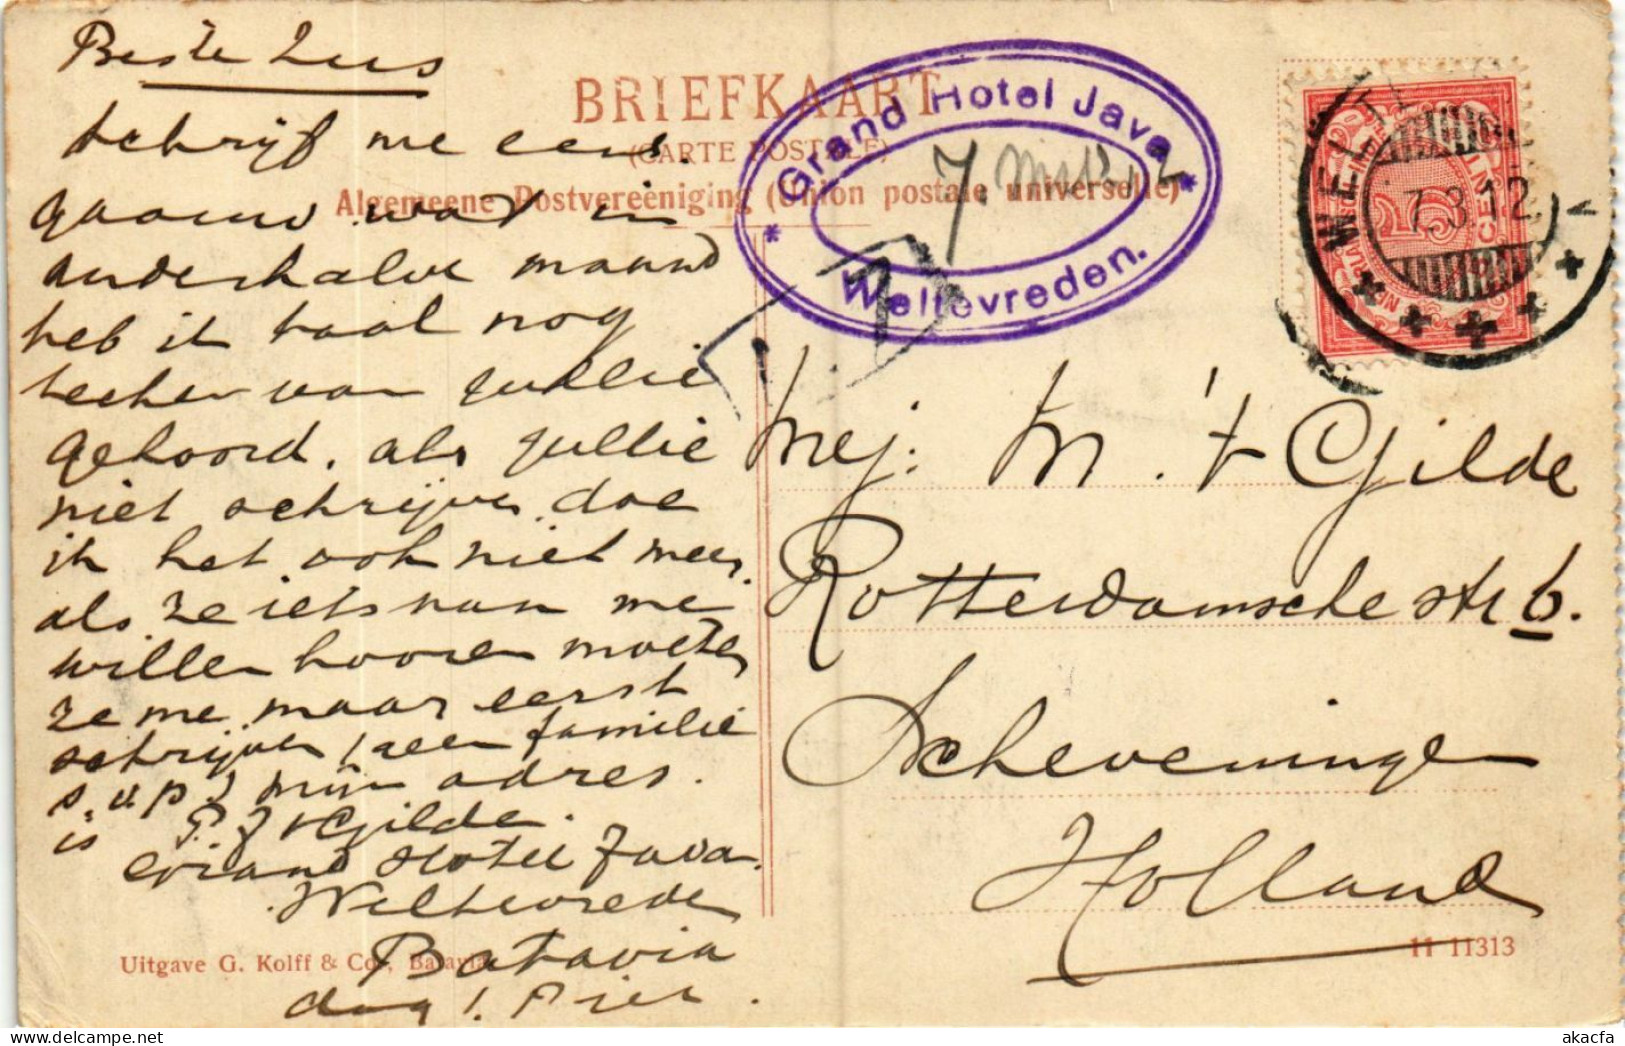 Beste Zus
schrijf me eens.
gaauw wat in
anderhalve maand
heb ik taal nog
teeken van jullie
gehoord. als jullie
niet schrijven doe
ik het ook niet meer.
als ze iets van me
willen hooren moeten
ze me maar eerst
schrijven, geen familie
s.v.p.! mijn adres.
is P. J. 't Gilde.
Grand Hotel Java.
Weltevreden
Batavia
dag!. Piet.
BRIEFKAART
(CARTE POSTALE)
Algemeene Postvereeniging (Union postale universelle)
* Grand Hotel Java *
Weltevreden.
7.
WELTE
7.3.12
5
CENT
Mej: M. 't Gilde
Rotterdamschestr 6.
Scheveningen
Holland
Uitgave G. Kolff & Co., Batavia
11 11313
akacfa